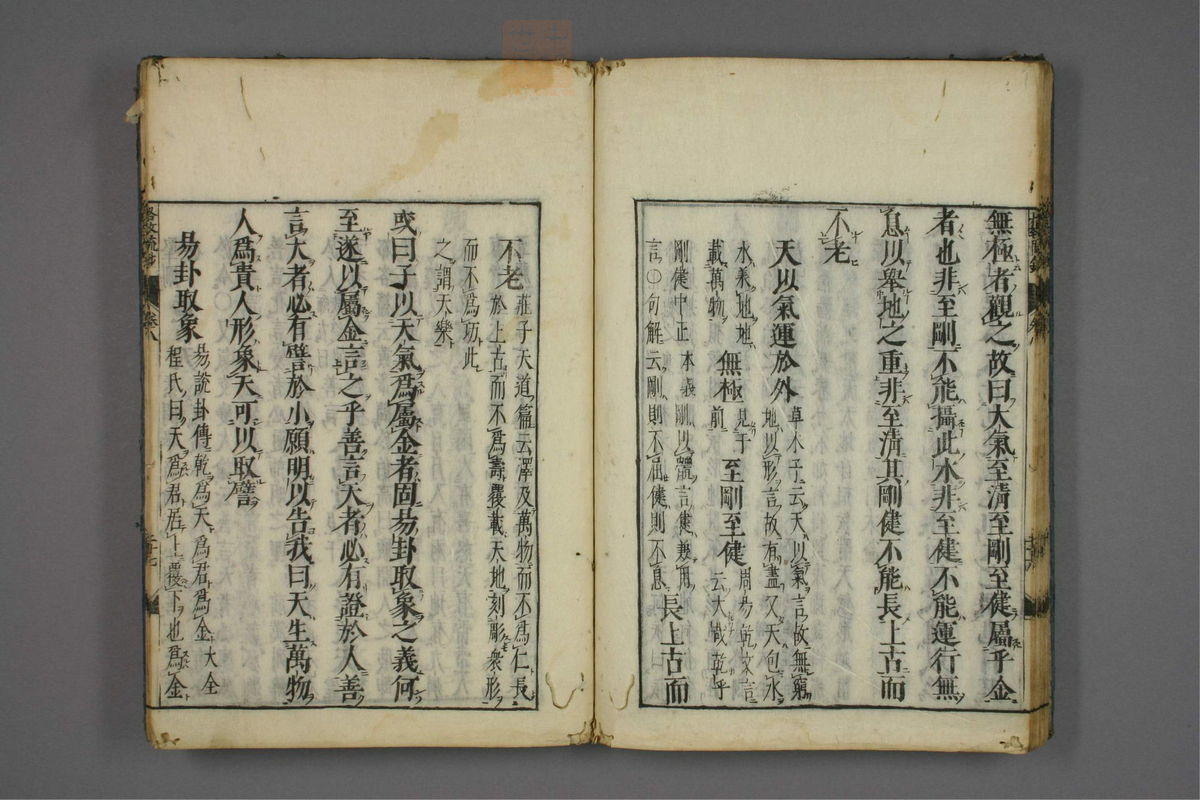 無極者觀之故曰大氣至清至剛至健屬乎金
者也非至剛不能攝此水非至健不能運行無
息以舉地之重非至清其剛健不能長上古而
不老
天以氣運於外
草木子云天以氣言故無窮
地以形言故有盡又天包水
水承地地
載萬物
無極
見于
前
至剛至健
周易乾文言
云大哉乾乎
剛健中正本義剛以體言健兼用
言〇句解云剛則不屈健則不息
長上古而
不老
莊子天道篇云澤及萬物而不爲仁長
於上古而不爲壽覆載天地刻彫衆形
而不爲巧此
之謂天樂
或曰子以天氣爲屬金者固易卦取象之義何
至遂以屬金言之乎善言天者必有證於人善
言大者必有譬於小願明以告我曰天生萬物
人爲貴人形象天可以取譬
易卦取象
易說卦傳乾爲天爲君爲金大全
程氏曰天爲君居上覆下也爲金